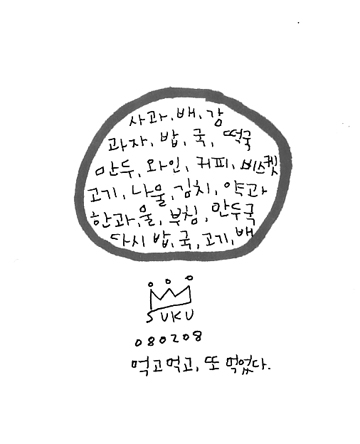 사과, 배, 감
과자, 밥, 국, 떡국
만두, 와인, 커피, 비스켓
고기, 나물, 김치, 약과
한과, 물, 부침, 만두국
다시 밥, 국, 고기, 배
SUKU
080208
먹고먹고, 또 먹었다.